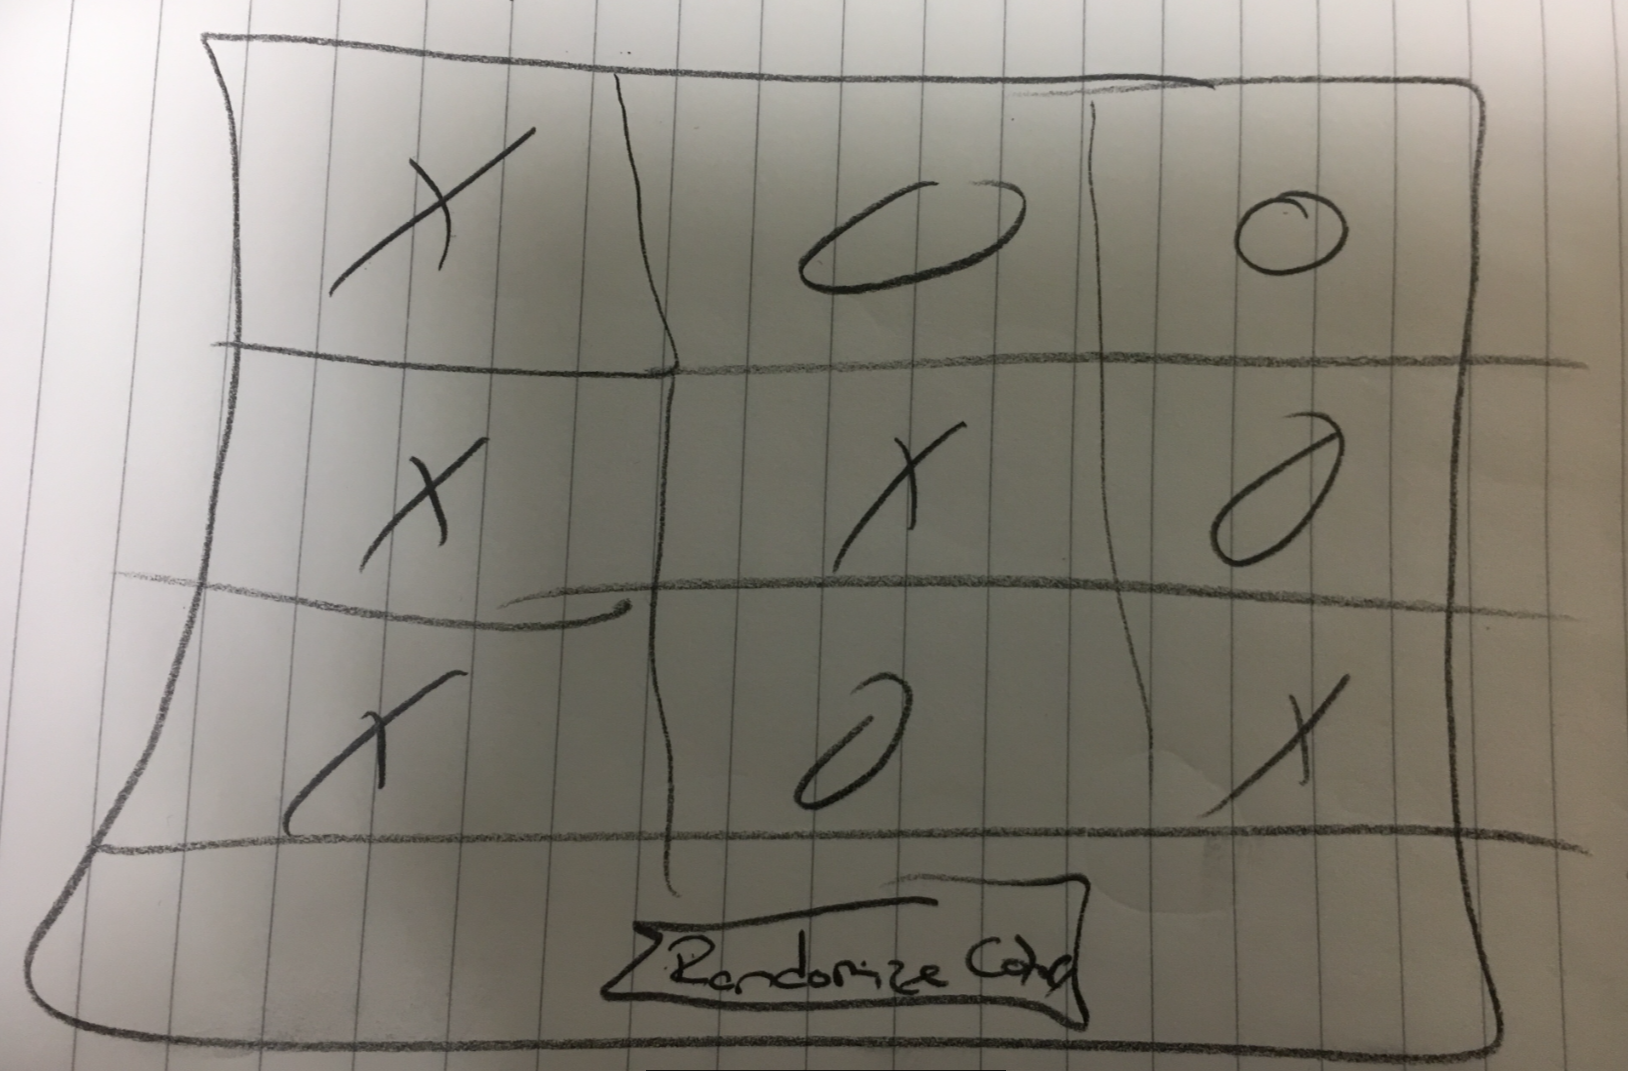 X O O
X X O
X O X
Randomize